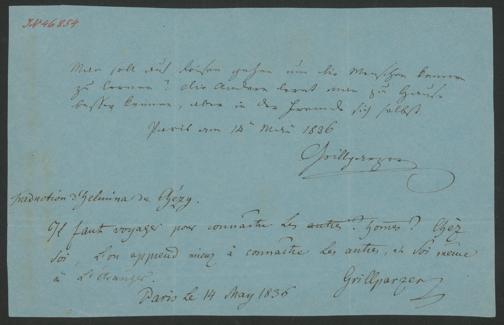 I.N 46.854
Man soll auf Reisen gehen um die Menschen kennen
zu lernen? Die Andern lernt man zu Hause
besser kennen, aber in der Fremde sich selbst.
Paris am 14 Mai 1836
Grillparzer
traduction d'Helmina de Chézy.
Il faut voyager pour connaître les autres? homes? Chéz
soi, l'on apprend mieux à connaître les autres, et soi même
à l'étranger.
Grillparzer
Paris le 14 May 1836